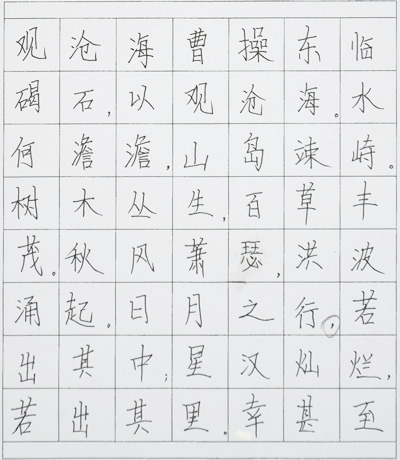 观沧海曹操东临
碣石,以观沧海。水
何澹澹,山岛竦峙。
树木丛生,百草丰
茂。秋风萧瑟,洪波
涌起。日月之行,若
出其中;星汉灿烂,
若出其里。幸甚至